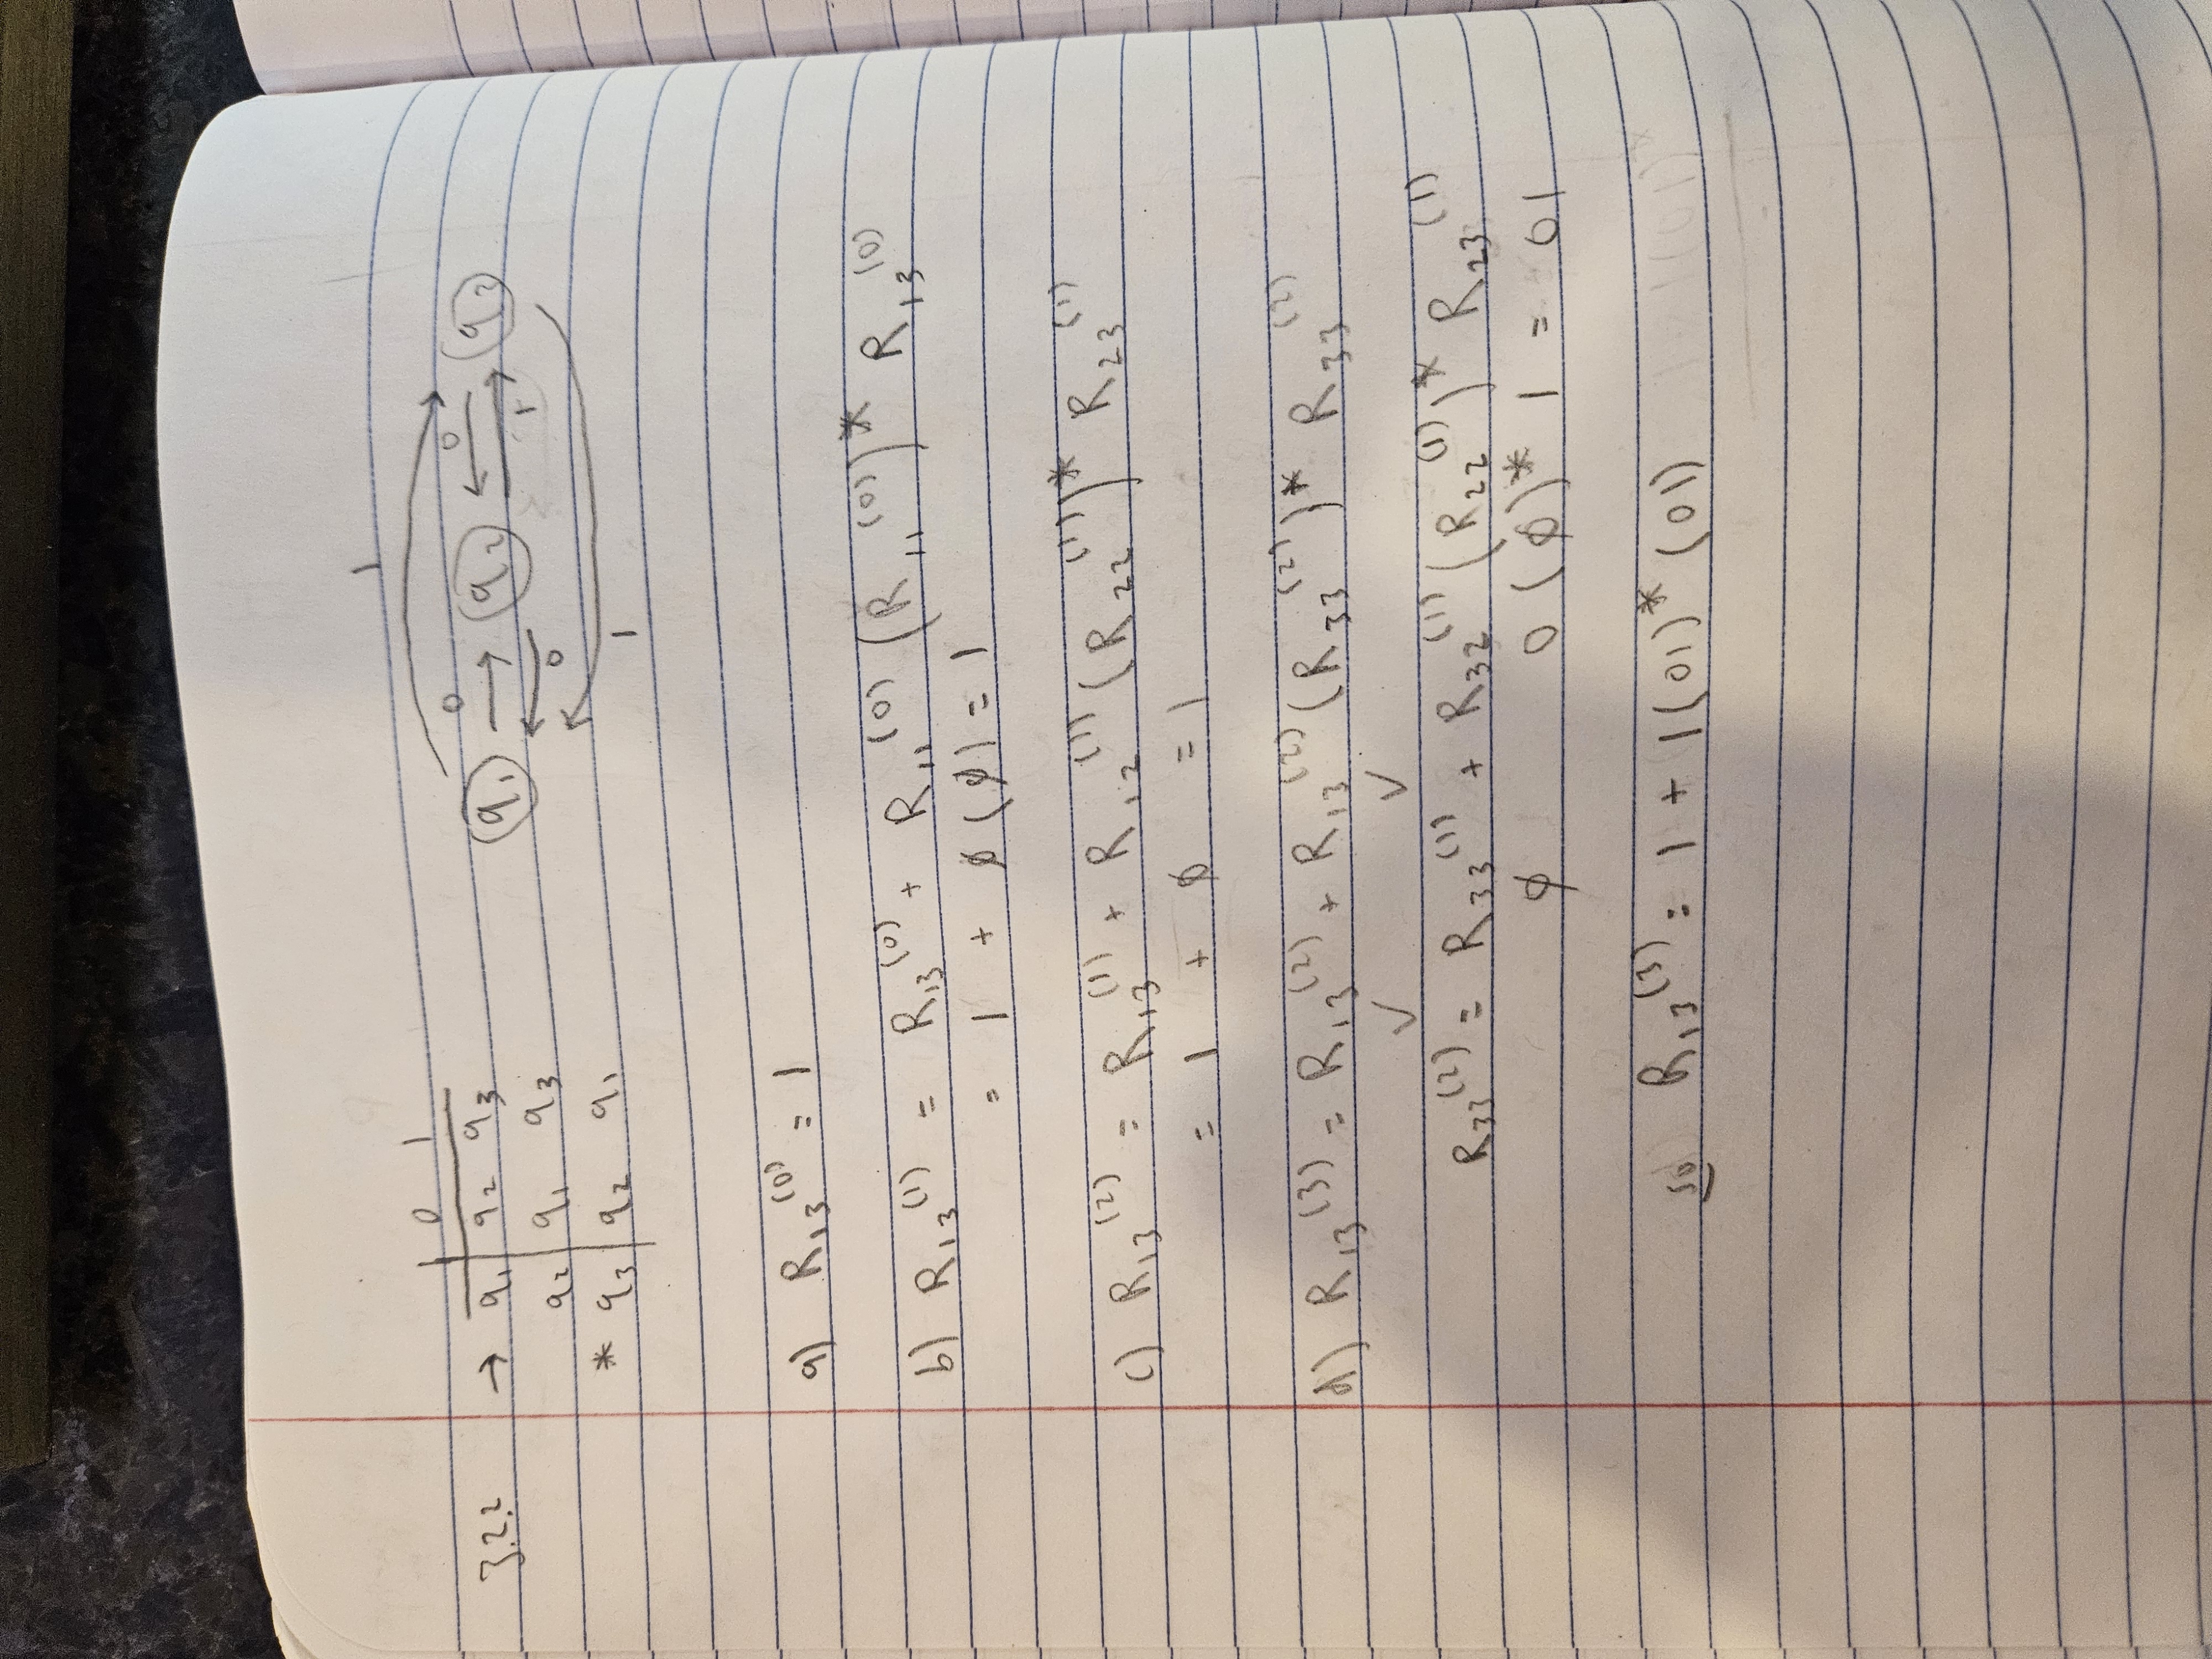 0 1
3.2.2 → q₁ q₂ q₃
q₂ q₁ q₃
* q₃ q₂ q₁
1
0 0
q₁ q₂ q₃
0 1
1
a) R₁₃⁽⁰⁾ = 1
b) R₁₃⁽¹⁾ = R₁₃⁽⁰⁾ + R₁₁⁽⁰⁾ (R₁₁⁽⁰⁾)* R₁₃⁽⁰⁾
= 1 + ∅ (∅) = 1
c) R₁₃⁽²⁾ = R₁₃⁽¹⁾ + R₁₂⁽¹⁾ (R₂₂⁽¹⁾)* R₂₃⁽¹⁾
= 1 + ∅ = 1
d) R₁₃⁽³⁾ = R₁₃⁽²⁾ + R₁₃⁽²⁾ (R₃₃⁽²⁾)* R₃₃⁽²⁾
✓ ✓
R₃₃⁽²⁾ = R₃₃⁽¹⁾ + R₃₂⁽¹⁾ (R₂₂⁽¹⁾)* R₂₃⁽¹⁾
∅ 0 (∅)* 1 = 01
so R₁₃⁽³⁾ = 1 + 1(01)* (01)